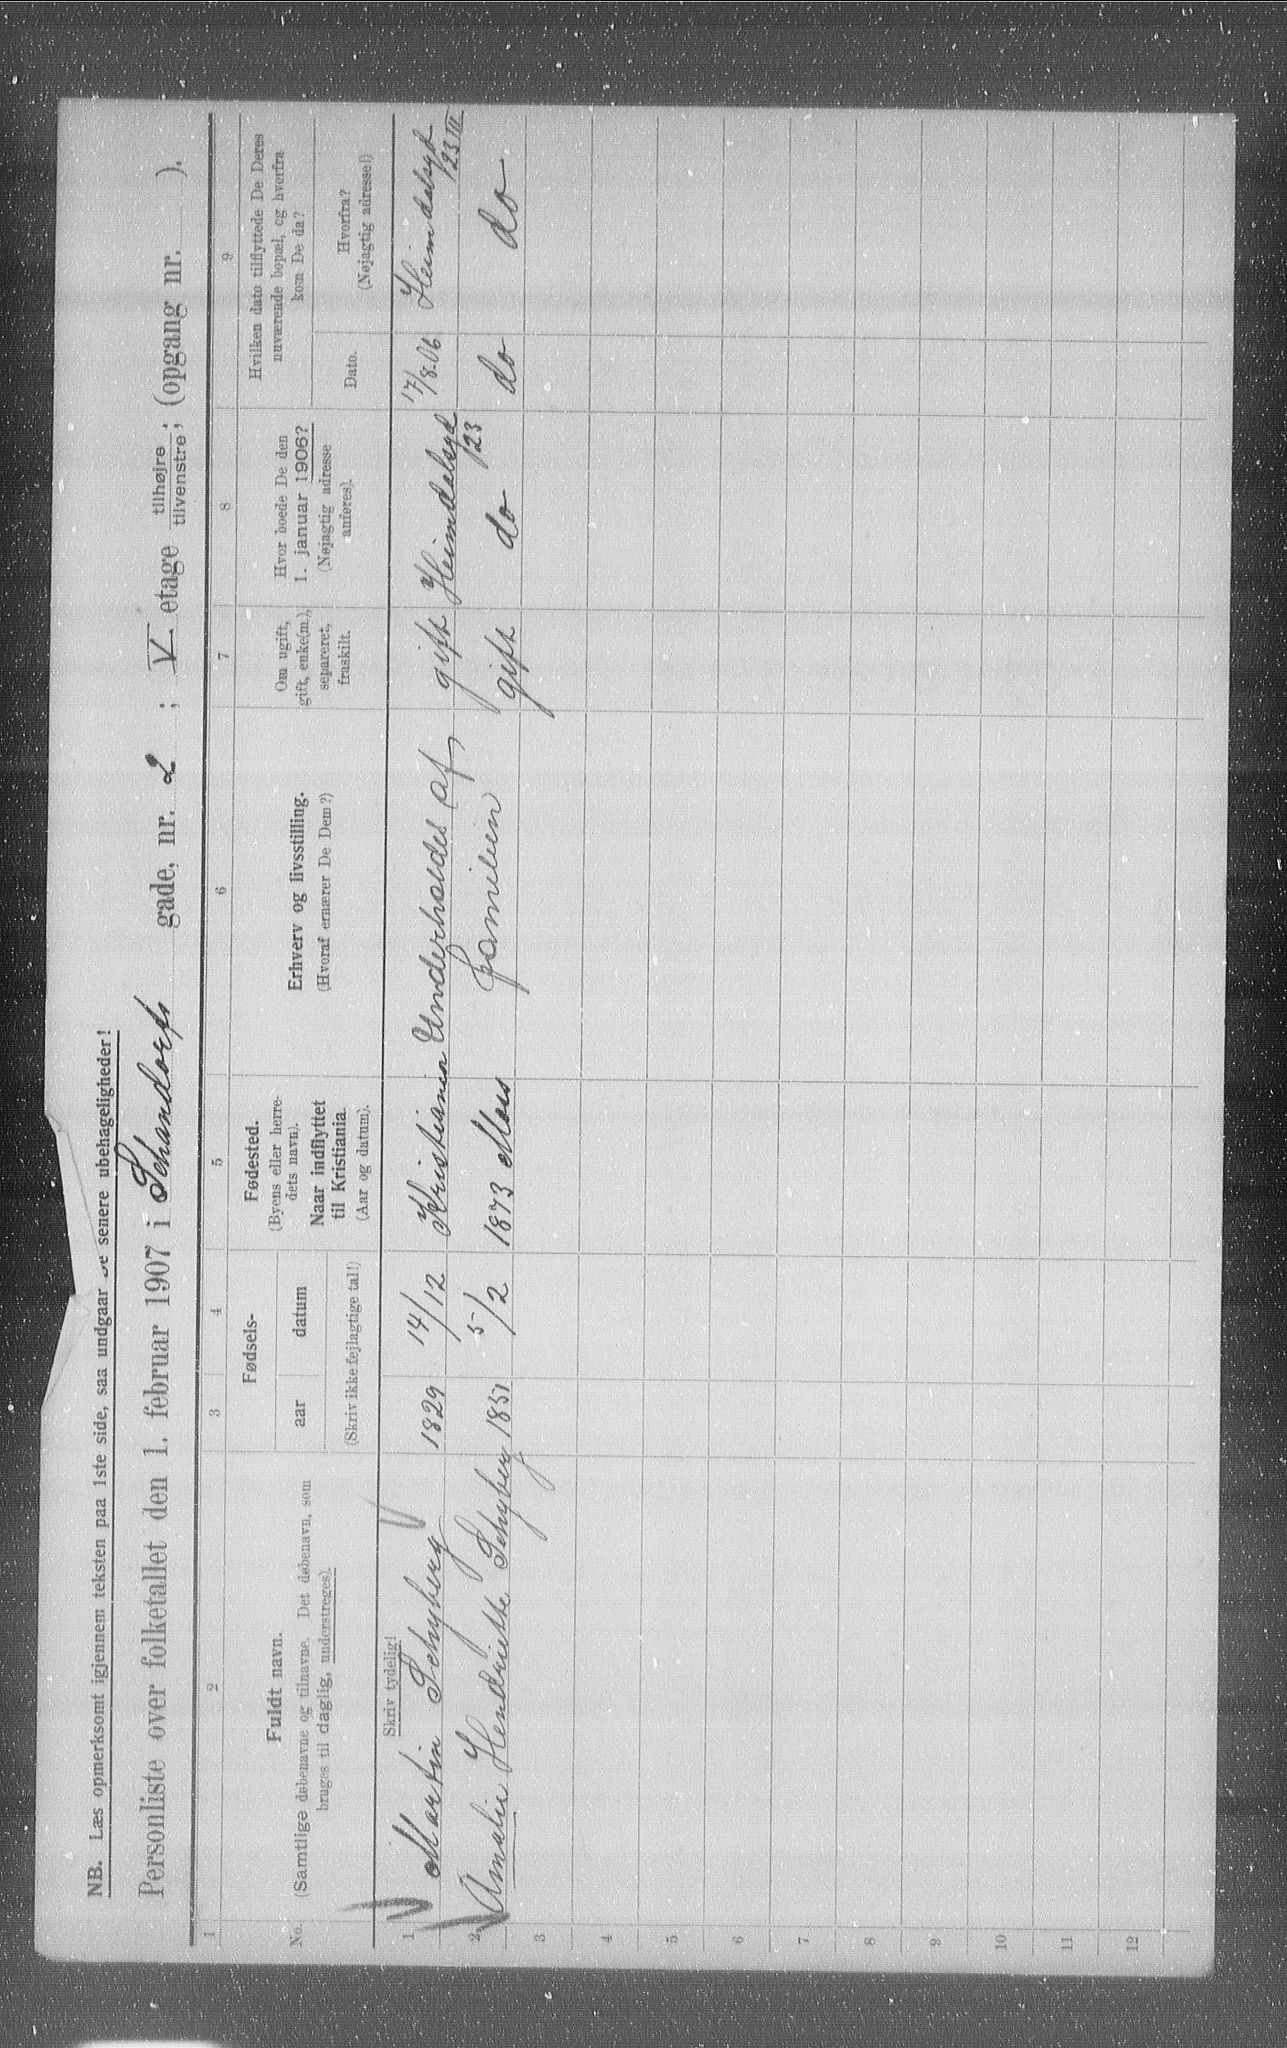 NB. Læs opmerksomt igjennem teksten paa 1ste side, saa undgaar De senere ubehageligheder!
Personliste over folketallet den 1. februar 1907 i Schandorfs gade, nr. 2 ; V etage tilhøjre tilvenstre; (opgang nr. ).
1 2 3 4 5 6 7 8 9
No.
Fuldt navn.
(Samtlige døbenavne og tilnavne. Det døbenavn, som
bruges til daglig, understreges).
Fødsels-
aar datum
(Skriv ikke fejlagtige tal!)
Fødested.
(Byens eller herre-
dets navn).
Naar indflyttet
til Kristiania.
(Aar og datum).
Erhverv og livsstilling.
(Hvoraf ernærer De Dem?)
Om ugift,
gift, enke(m.),
separeret,
fraskilt.
Hvor boede De den
1. januar 1906?
(Nøjagtig adresse
anføres).
Hvilken dato tilflyttede De Deres
nuværende bopæl, og hvorfra
kom De da?
Dato.
Hvorfra?
(Nøjagtig adresse!)
Skriv tydelig!
1 Martin Schyberg 1829 14/12 Kristiania Underholdes af gift Heimdalsgd 23 17/8.06 Heimdalsgd 23 III
2 Amalie Hendriette Schyberg 1851 5/2 1873 Moss familien gift do do do
3
4
5
6
7
8
9
10
11
12